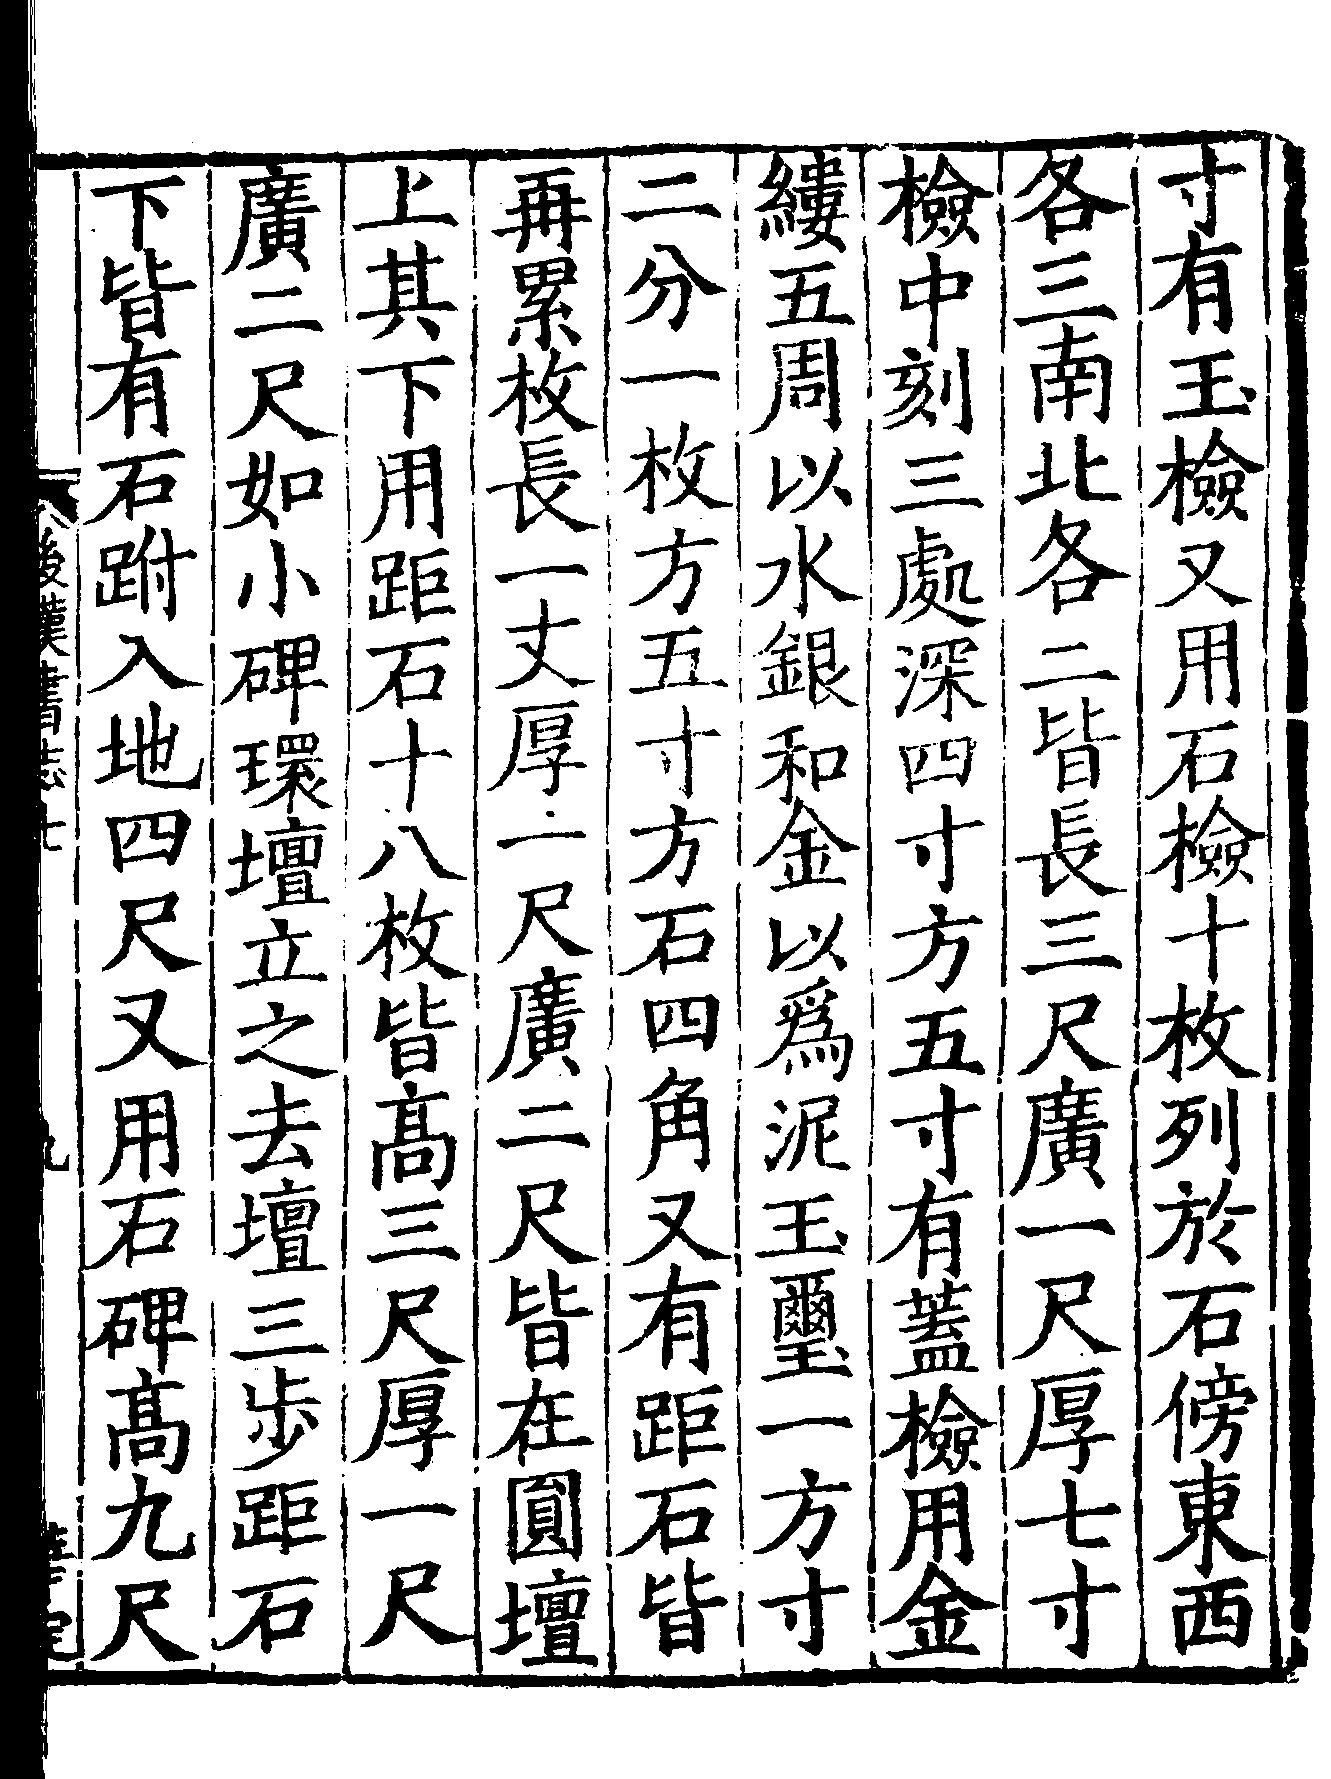 寸有玉檢又用石檢十枚列於石傍東西
各三南北各二皆長三尺廣一尺厚七寸
檢中刻三處深四寸方五寸有蓋檢用金
縷五周以水銀和金以爲泥玉璽一方寸
二分一枚方五寸方石四角又有距石皆
再累枚長一丈厚一尺廣二尺皆在圓壇
上其下用距石十八枚皆高三尺厚一尺
廣二尺如小碑環壇立之去壇三步距石
下皆有石跗入地四尺又用石碑高九尺
後漢書志七
九